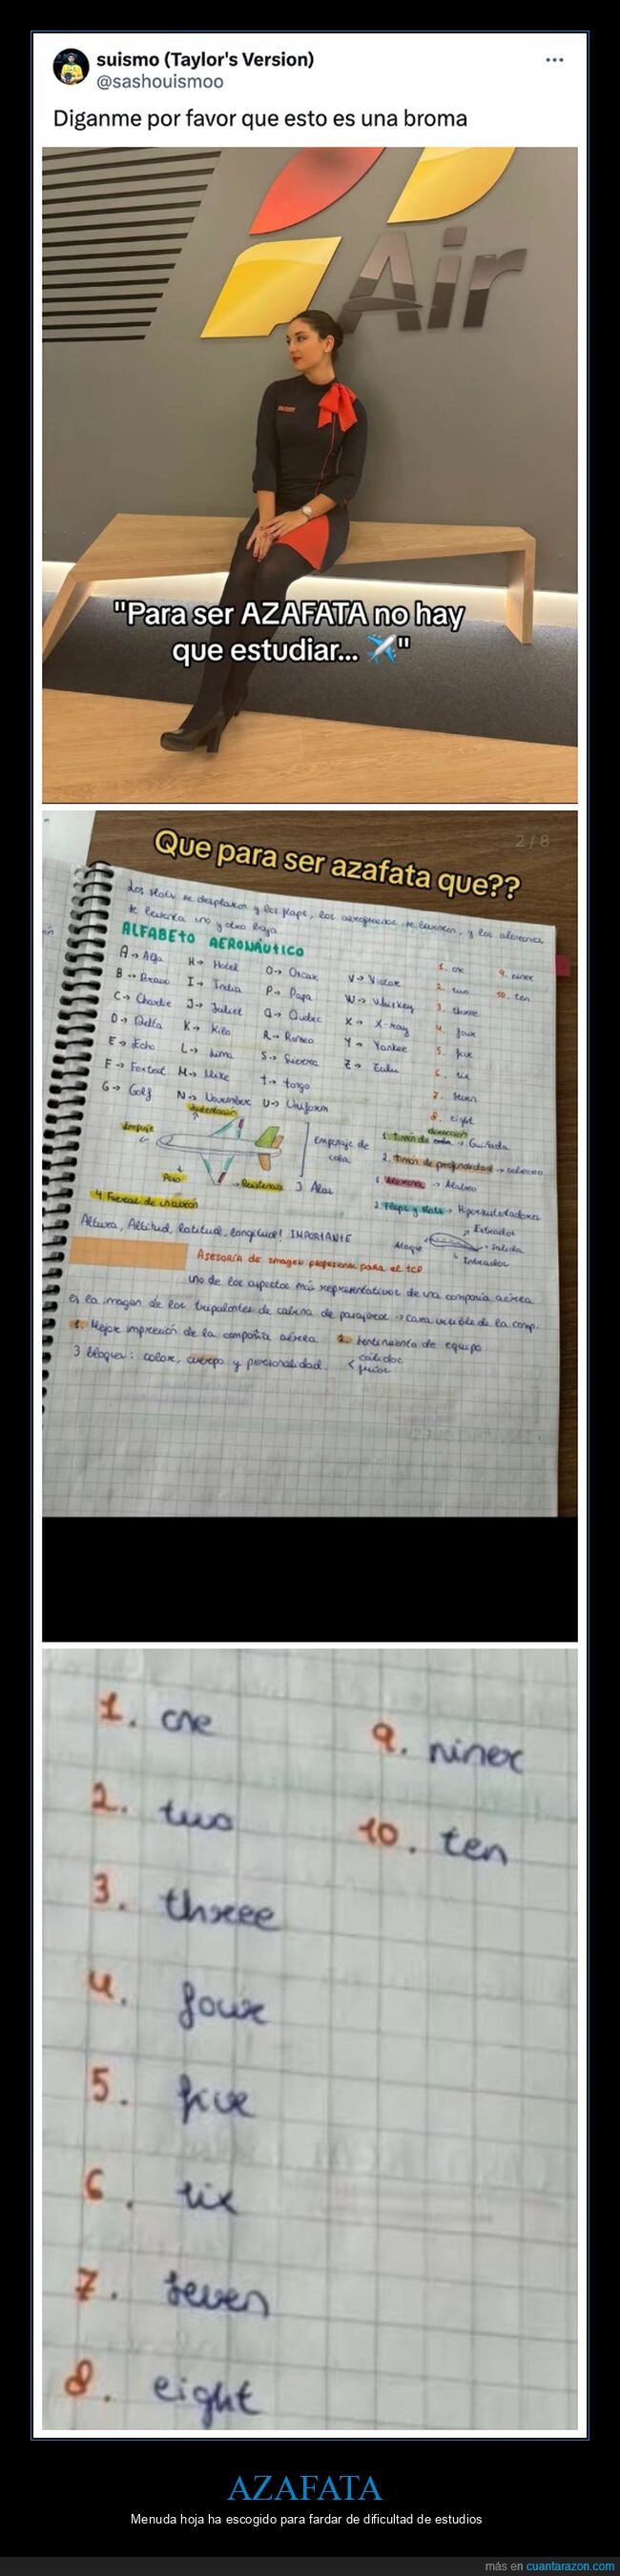 suismo (Taylor's Version)
@sashouismoo
Diganme por favor que esto es una broma
Air
"Para ser AZAFATA no hay
que estudiar... ✈️"
2/8
Que para ser azafata que??
Los slats se desplazan y los flaps, los aerofrenos se levantan, y los alerones
se levanta uno y otro baja.
ALFABETO AERONÁUTICO
A → Alfa H → Hotel O → Oscar V → Victor 1. one 9. niner
B → Bravo I → India P → Papa W → Whiskey 2. two 10. ten
C → Charlie J → Juliet Q → Quebec X → X-ray 3. threee
D → Delta K → Kilo R → Romeo Y → Yankee 4. four
E → Echo L → Lima S → Sierra Z → Zulu 5. five
F → Foxtrot M → Mike T → tango 6. six
G → Golf N → November U → Uniform 7. seven
8. eight
Sustentación
Empuje
Peso
Resistencia
Empenaje de
cola
3 Alas
dirección
1. Timón de → Guiñada
2. Timón de profundidad → cabeceo
1. Alerones → Alabeo
2. Flaps y slats → Hipersustentadores
4 Fuerzas de
Altura, Altitud, latitud, longitud! IMPORTANTE
Ataque
Extrados
Salida
Intrados
Asesoría de imagen profesional para el TCP
uno de los aspectos más representativos de una compañía aérea
es la imagen de los tripulantes de cabina de pasajeros → cara visible de la comp.
1. Mejor impresión de la compañía aérea 2. Sentimiento de equipo
3 bloques: color, cuerpo y personalidad.
1. one
2. two
3. threee
4. four
5. five
6. six
7. seven
8. eight
9. niner
10. ten
AZAFATA
Menuda hoja ha escogido para fardar de dificultad de estudios
más en cuantarazon.com